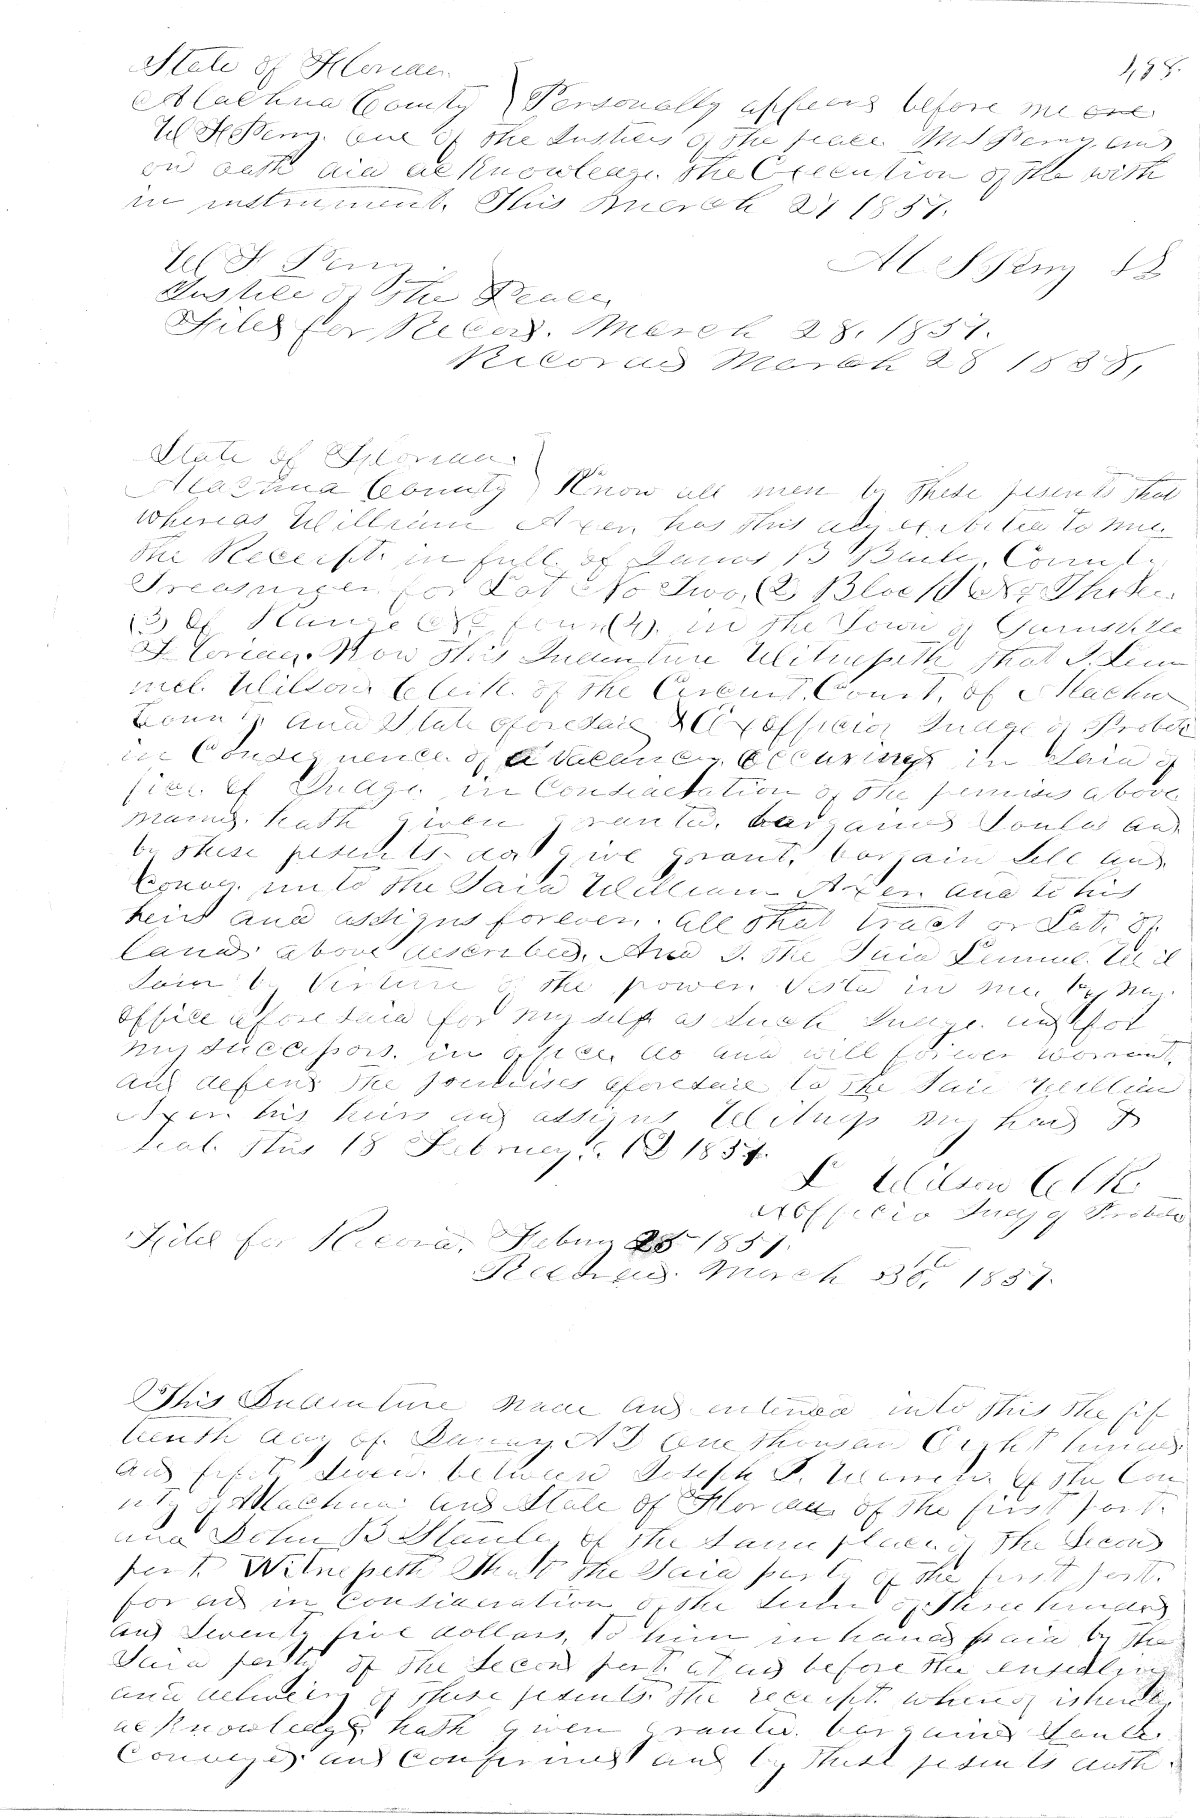 488.
State of Florida
Alachua County } Personally appears before me one
W F Perry. one of the Justices of the peace M S Perry and
on oath did acknowledge. The Execution of the with
in instrument. This March 27 1857.
M S Perry LS
W F Perry.
Justice of the Peace
Filed for Record. March 28. 1857.
Recorded March 28 1858,
State of Florida.
Alachua County } Know all men by these presents that
whereas William Axer, has this day exibited to me
The Receipt. in full of James B Baily, County
Treasurer for Lot No Two, (2) Block No Three
(3) of Range No four (4). in the Town of Gainsville
Florida. Now this Indenture Witnesseth that I. Lem
uel. Wilson Clerk. of the Circuit. Court, of Alachua
County and State aforesaid & Exofficio Judge of Probate
in Consequence of a vacancy occuring in said of
fice of Judge. in Consideration of the premises above
named. hath given granted. bargained Sould and
by these presents. do give grant, bargain Sell and
Convey. unto the Said William Axer and to his
heirs and assigns forever. all that tract or Lot. of
land above described. And I. the Said Lemuel Wil
son by Virtue of the power. Vested in me, by my
office aforesaid for my self as Such Judge. and for
my successors. in office. do and will forever warrant,
and defend the premises aforesaid to the Said William
Axer his heirs and assigns Witness my hand &
Seal. this 18 February. AD 1857.
L Wilson Clk.
Exofficio Judg of Probate
Filed for Record, Februy 25 1857.
Recorded. March 30th, 1857.
This Indenture made and entered into this the fif
teenth day of. January AD One thousan Eight hundred
and fifty Seven. between Joseph S. of the Cou
nty of Alachua and State of Florida of the first part.
and John B Stanley of the Same place of the Second
part. Witnesseth That the Said party of the first part.
for and in Consideration of the Sum of Three hundred
and Seventy five dollars, to him in hand paid by the
Said party of the Second part. at and before the ensealing
and delivery of these presents. the receipt. whereof is hereby
acknowledged hath given granted. bargained Sould.
Conveyed and Confirmed and by these presents doth.